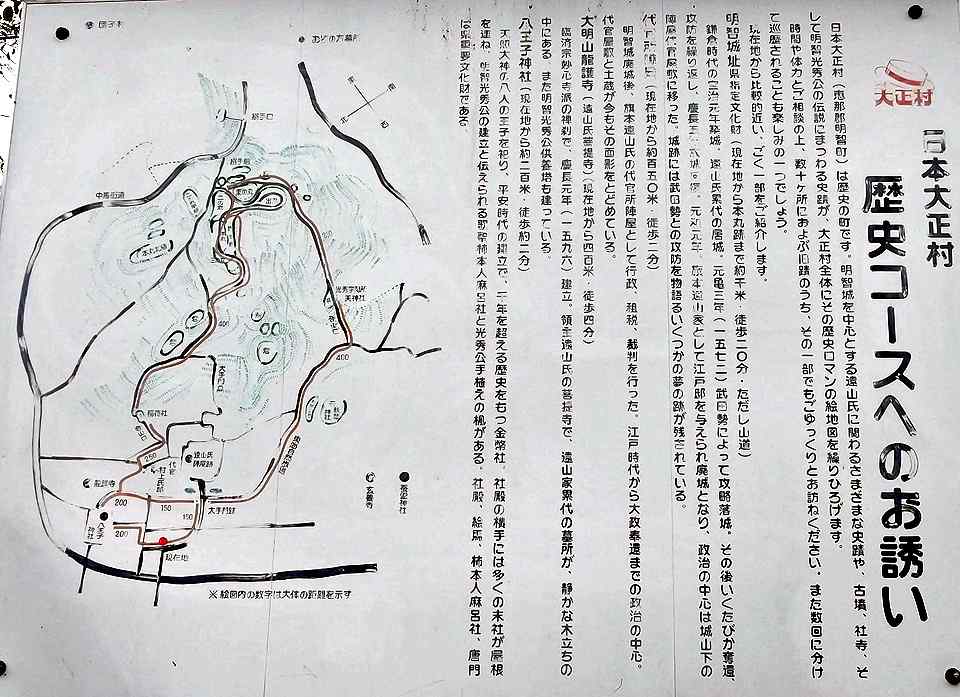 大正村
日本大正村
歴史コースへのお誘い
日本大正村(恵那郡明智町)は歴史の町です。明智城を中心とする遠山氏に関わるさまざまな史蹟や、古墳、社寺、そ
して明智光秀公の伝説にまつわる史蹟が、大正村全体にその歴史ロマンの絵地図を繰りひろげます。
時間や体力とご相談の上、数十ヶ所におよぶ旧蹟のうち、その一部でもごゆっくりとお訪ねください。また数回に分け
て巡歴されることも楽しみの一つでしょう。
現在地から比較的近い、ごく一部をご紹介します。
明智城址 県指定文化財(現在地から本丸跡まで約千米・徒歩二〇分・ただし山道)
鎌倉時代の宝治元年築城、遠山氏累代の居城。元亀三年(一五七二)武田勢によって攻略落城。その後いくたびか奪還、
攻防を繰り返し、慶長五年 城 復。元和元年、旗本遠山家として江戸邸を与えられ廃城となり、政治の中心は城山下の
陣屋代官屋敷に移った。城跡には武田勢との攻防を物語るいくつかの夢の跡が残されている。
代官陣屋(現在地から約百五〇米 徒歩二分)
明智城廃城後、旗本遠山氏の代官所陣屋として行政、租税、裁判を行った。江戸時代から大政奉還までの政治の中心。
代官屋敷と土蔵が今もその面影をとどめている。
大明山龍護寺(遠山氏菩提寺)(現在地から四百米・徒歩四分)
臨済宗妙心寺派の禅刹で、慶長元年(一五九六)建立。領主遠山氏の菩提寺で、遠山家累代の墓所が、静かな木立ちの
中にある。また明智光秀公供養塔も建っている。
八王子神社(現在地から約二百米・徒歩約二分)
天照大神の八人の王子を祀り、平安時代の建立で、千年を超える歴史をもつ金幣社。社殿の横手には多くの末社が屋根
を連ね、明智光秀公の建立と伝えられる 柿本人麻呂社と光秀公手植えの楓がある。社殿、絵馬、柿本人麻呂社、唐門
は県重要文化財である。
おその方墓所
搦手口
中馬街道
本丸
光秀学問所
天神社
400
400
大手門
稲荷社
250
遠山氏
陣屋跡
代官
村上氏邸
龍護寺
200
150
150
大手門跡
八王子
神社
200
現在地
神社
※絵図内の数字は大体の距離を示す